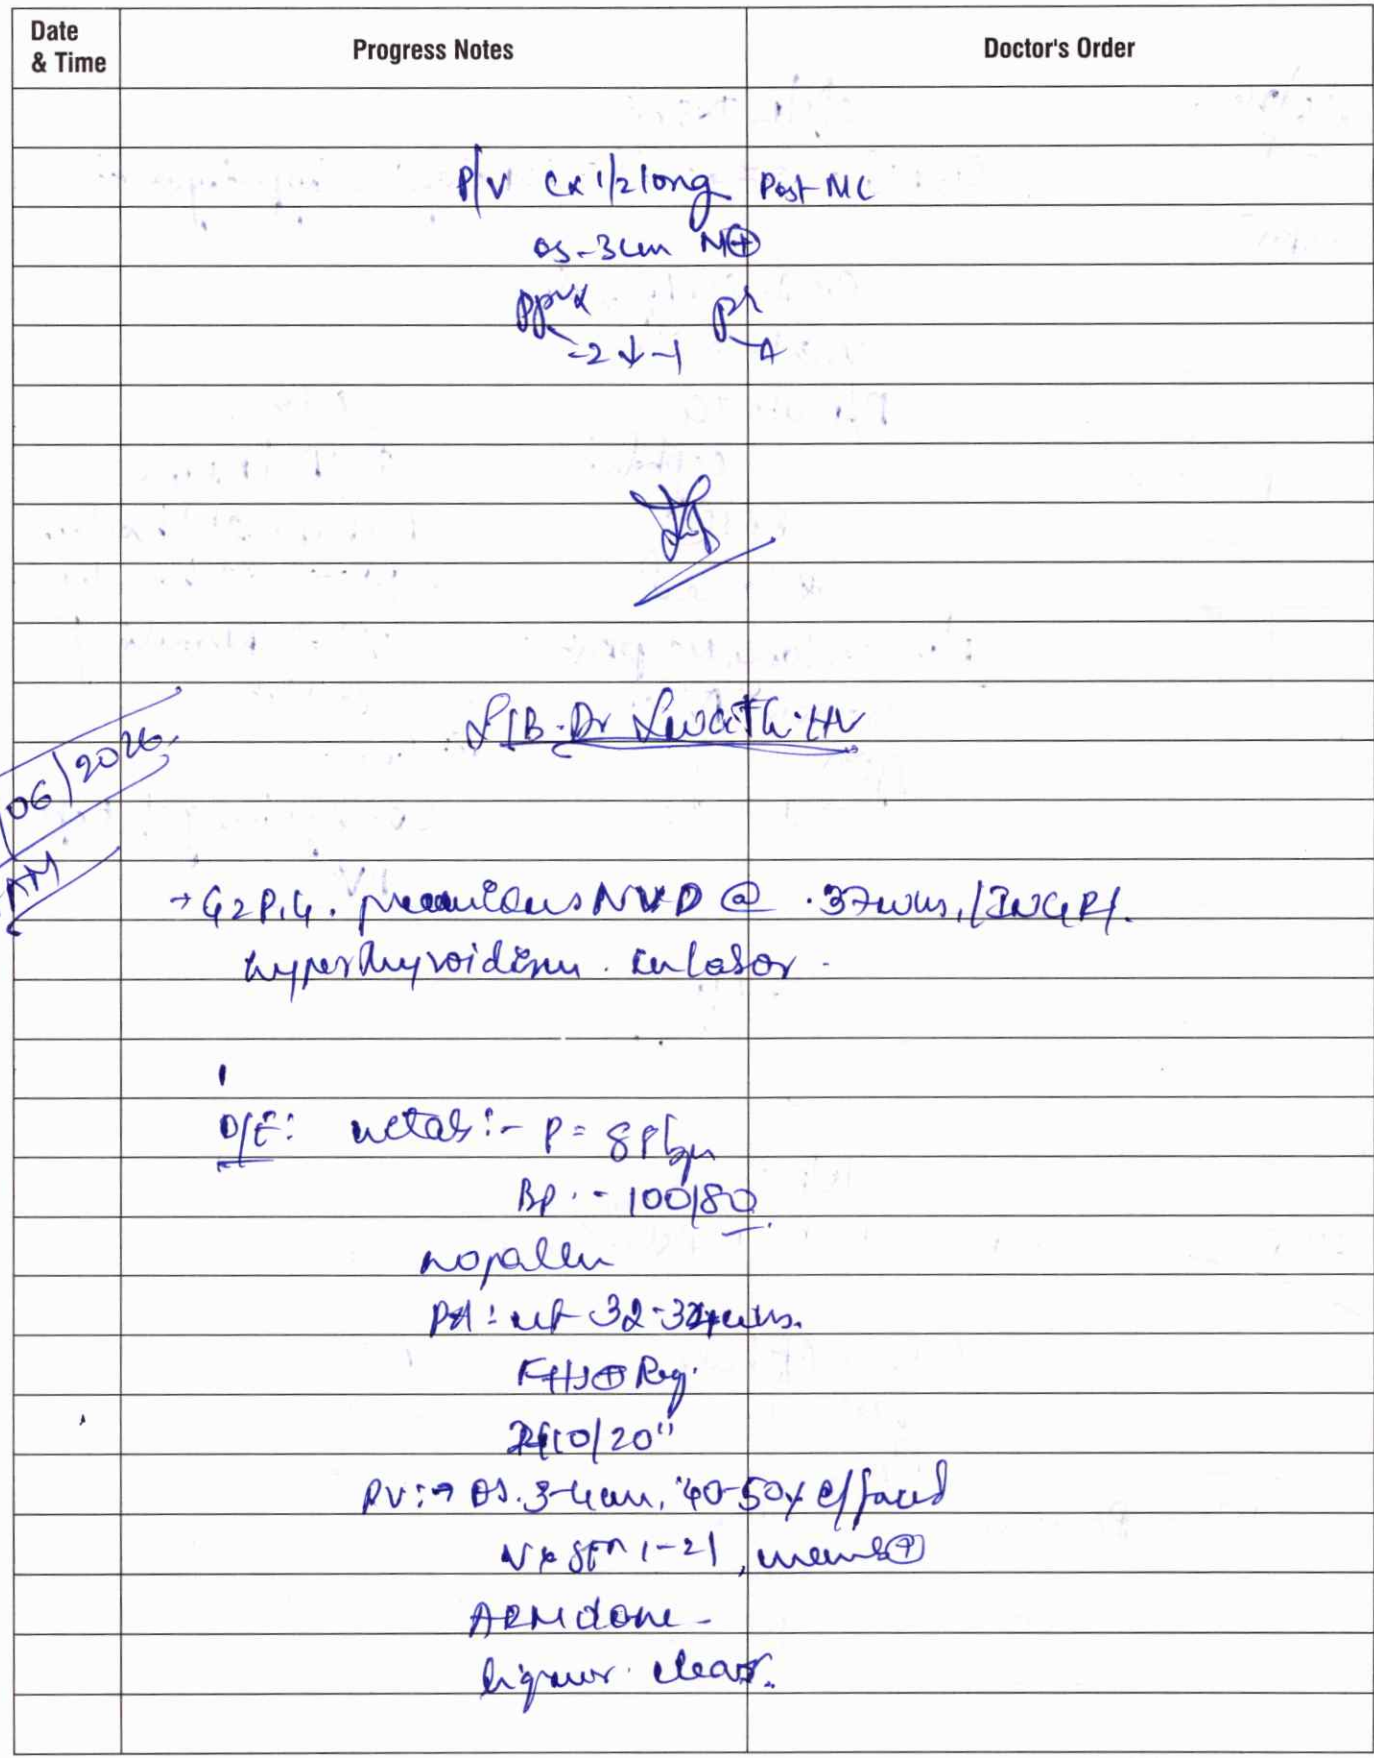 Date & Time Progress Notes Doctor's Order
P/V Cx 1/2 long Post MC
os - 3cm M⊕
PPVx -2 ↓ -1 P A
S/B. Dr Swathi HV
/06/2026
AM
→ G2P1L1. previous NVD @ 37wks / IUGR /
hyperthyroidism. in labor.
O/E: vitals :- P = 88bpm
BP. - 100/80
no pallor
PA: ut 32-34wks.
FHS⊕ Reg.
2/10/20"
PV: → OS. 3-4cm, 40-50% effaced
Vx stn (-2), memb⊕
ARM done -
liquor clear.